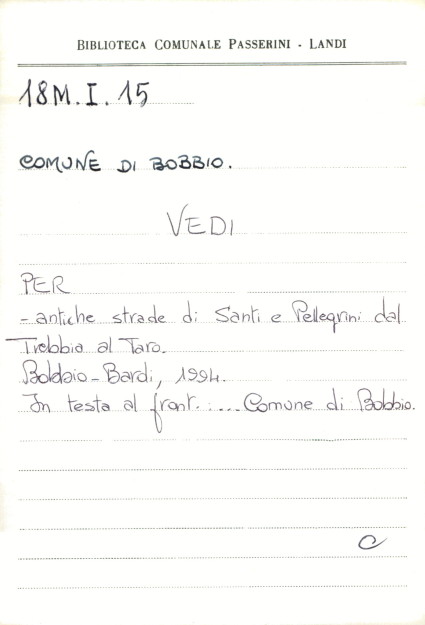 BIBLIOTECA COMUNALE PASSERINI - LANDI
18M.I.15
COMUNE DI BOBBIO.
VEDI
PER
- antiche strade di Santi e Pellegrini dal
Trebbia al Taro.
Bobbio - Bardi, 1994.
In testa al front. : ... Comune di Bobbio.
C